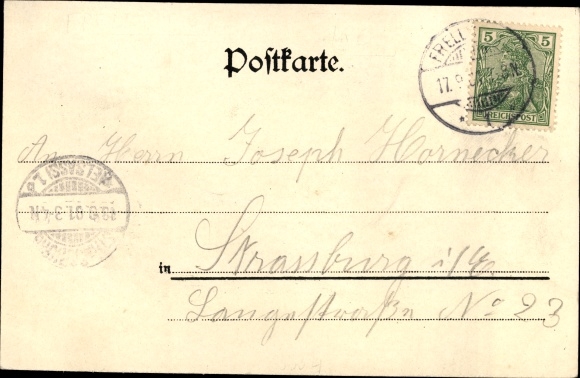 Postkarte.
5 5
REICHSPOST
17.9.
An Herrn Joseph Hornecker
in Strassburg i/E.
Langestraße No 23